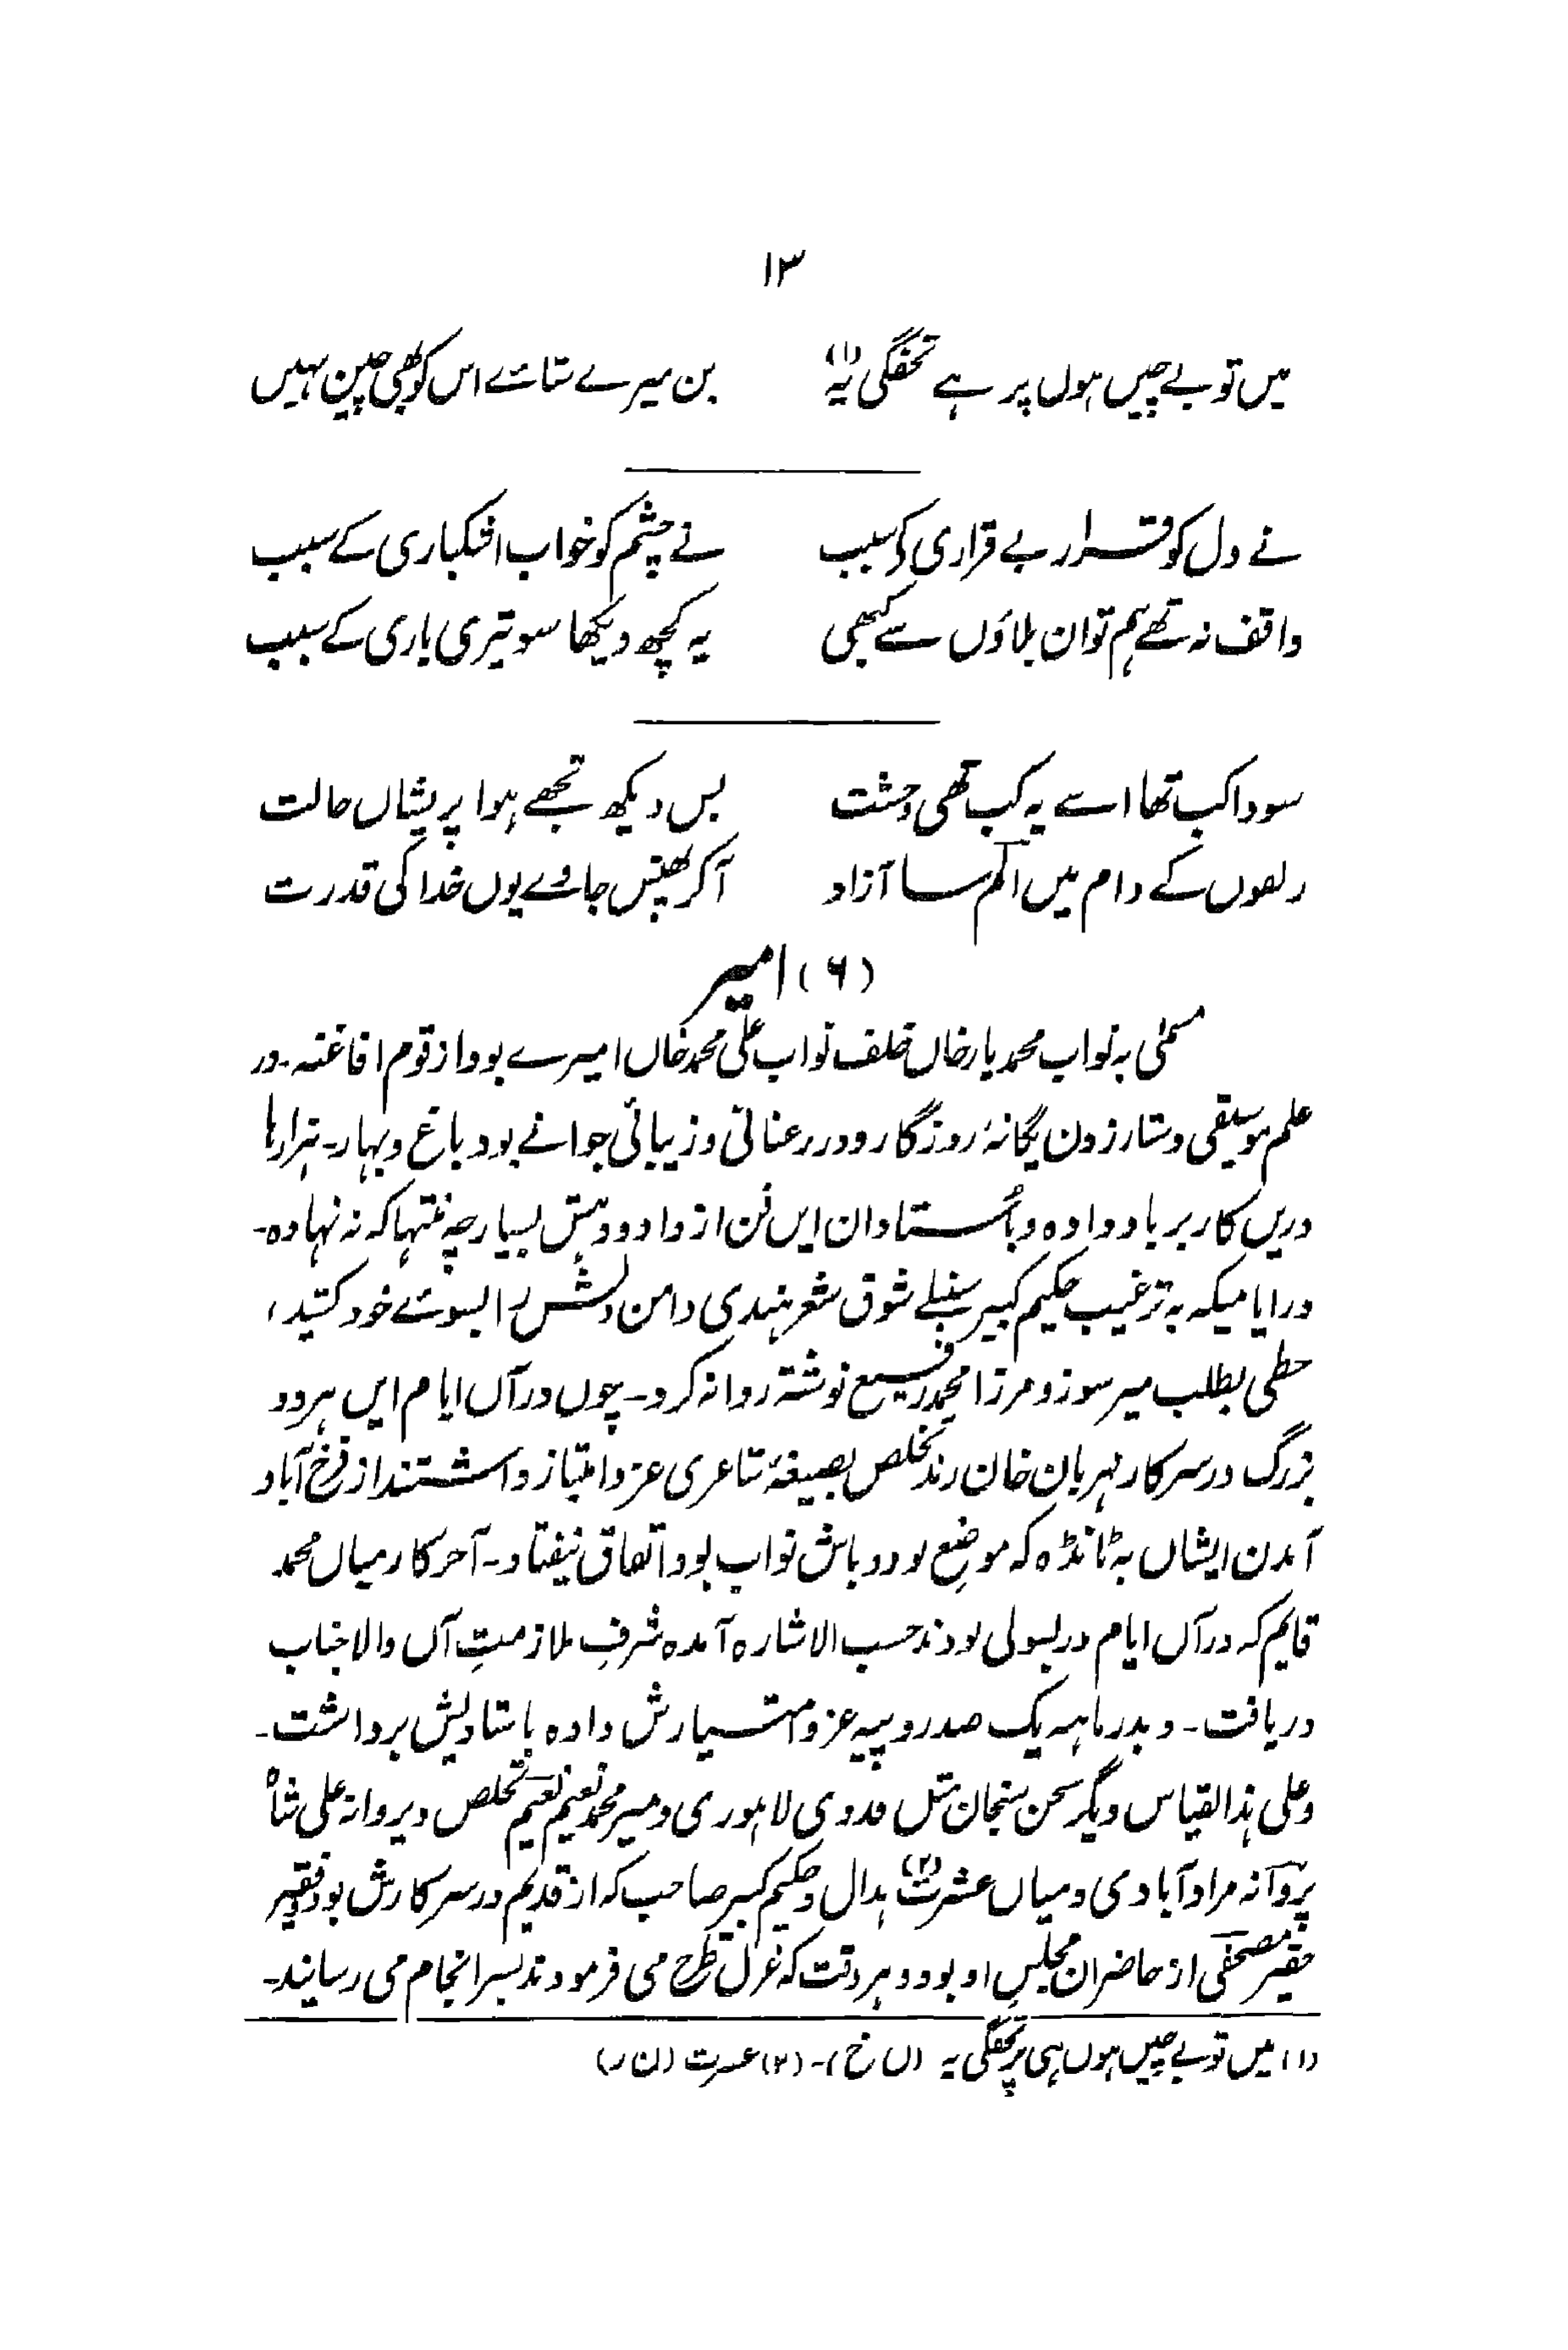 ۱۳
میں تو بے چیں ہوں پر ہے تحفگی یہ (۱) بن میرے ستائے اس کو بھی چین نہیں
نے دل کو قرار بے قراری کے سبب نے چشم کو خواب اشکباری کے سبب
واقف نہ تھے ہم تو ان بلاؤں سے کبھی یہ کچھ دیکھا سو تیری یاری کے سبب
سودا کب تھا اسے یہ کب تھی وحشت بس دیکھ تجھے ہوا پریشاں حالت
زلفوں کے دام میں اکرم سا آزاد آکر پھنس جاوے یوں خدا کی قدرت
(۶) امیر
مسمّٰی بہ نواب محمد یار خاں خلف نواب علی محمد خاں امیرے بود از قوم افاغنہ۔ در
علم موسیقی و ستار زدن یگانۂ روزگار و در رعنائی و زیبائی جوانے بود باغ و بہار۔ ہزارہا
دریں کار برباد دادہ و باُستادان ایں فن از داد و دہش بسیار چہ منتہا کہ نہ نہادہ۔
در ایامیکہ بہ ترغیب حکیم کبیر سنبلے شوق شعر ہندی دامن دلش را بسوئے خود کشید،
خطی بطلب میر سوز و مرزا محمد رفیع نوشتہ روانہ کرد۔ چوں در آں ایام ایں ہر دو
بزرگ در سرکار مہربان خان رند تخلص بصیغۂ شاعری عز و امتیاز داشتند از فرخ آباد
آمدن ایشاں بہ ٹانڈہ کہ موضعِ بود و باش نواب بود اتفاق نیفتاد۔ آخر کار میاں محمد
قایم کہ در آں ایام در بسولی بودند حسب الاشارہ آمدہ شرفِ ملازمتِ آں والا جناب
دریافت۔ و بدرماہہ یک صد روپیہ عز و امتیازش دادہ باستادیش برداشت۔
و علی ہذا القیاس دیگر سخن سنجان مثل فدوی لاہوری و میر محمد نعیم نعیم تخلص و پروانہ علی شاہ
پروانہ مراد آبادی و میاں عشرت (۲) ہدال و حکیم کبیر صاحب کہ از قدیم در سرکارش بود و فقیر
حقیر مصحفی از حاضران مجلسِ او بود و ہر وقت کہ غزل طرح می فرمودند بسر انجام می رسانید۔
(۱) میں تو بے چیں ہوں ہی پر تحفگی یہ (ں خ)۔ (۲) عسرت (ن ر)